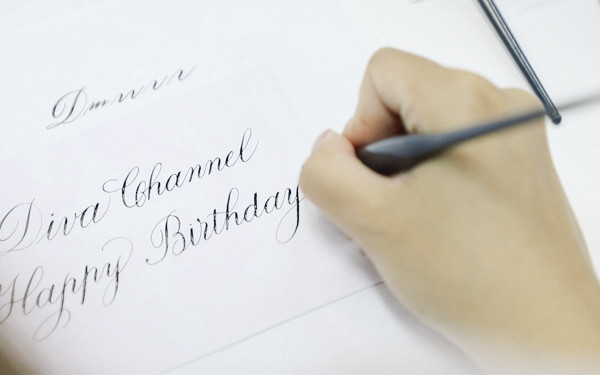 Diva Channel
Happy Birthday